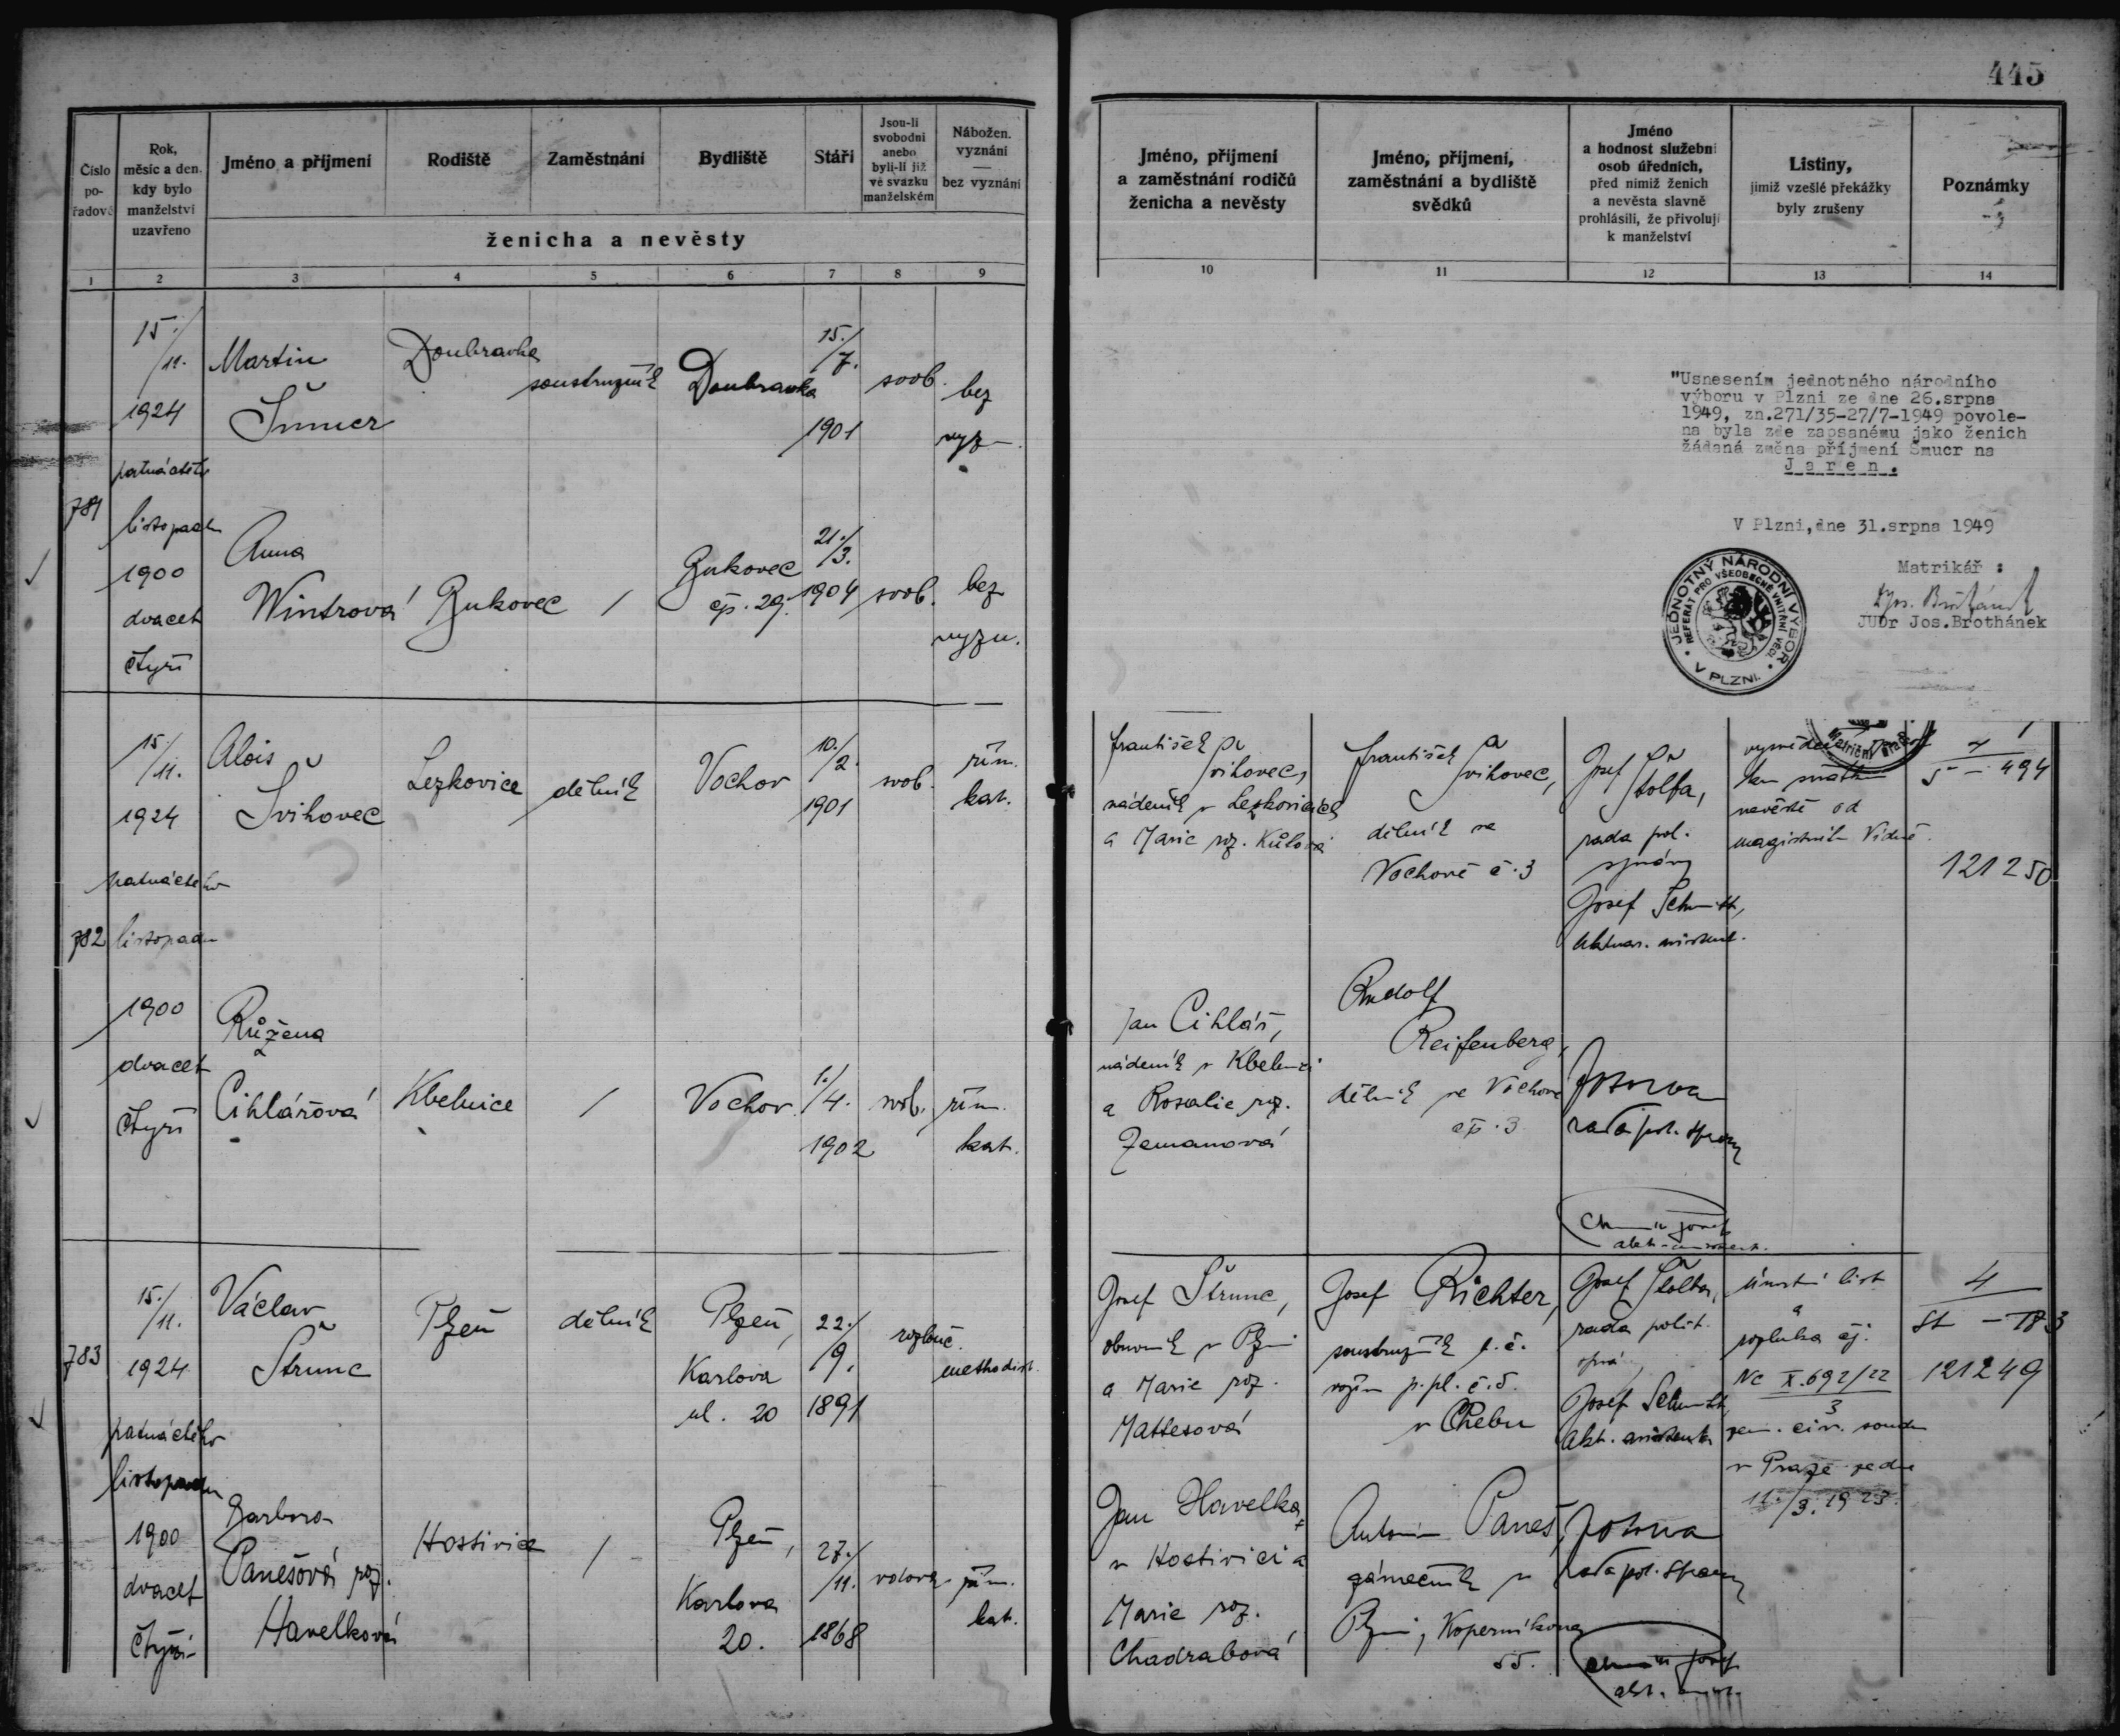 445
Číslo pořadové
Rok, měsíc a den, kdy bylo manželství uzavřeno
Jméno a příjmení
Rodiště
Zaměstnání
Bydliště
Stáří
Jsou-li svobodni anebo byli-li již ve svazku manželském
Nábožen. vyznání — bez vyznání
ženicha a nevěsty
Jméno, příjmení a zaměstnání rodičů ženicha a nevěsty
Jméno, příjmení, zaměstnání a bydliště svědků
Jméno a hodnost služební osob úředních, před nimiž ženich a nevěsta slavně prohlásili, že přivolují k manželství
Listiny, jimiž vzešlé překážky byly zrušeny
Poznámky
1 2 3 4 5 6 7 8 9 10 11 12 13 14
781
15./11.
1924
listopadu
1900
dvacet
čtyři
Martin
Šmucr
Doubravka
soustružník
Doubravka
15./7.
1901
svob.
bez
vyzn.
Anna
Wintrová
Bukovec
/
Bukovec
čp. 29.
21./3.
1904
svob.
bez
vyzn.
"Usnesením jednotného národního
výboru v Plzni ze dne 26.srpna
1949, zn.271/35-27/7-1949 povole-
na byla zde zapsanému jako ženich
žádaná změna příjmení Šmucr na
J a r e n .
V Plzni,dne 31.srpna 1949
Matrikář :
JUDr Jos.Brothánek
JEDNOTNÝ NÁRODNÍ VÝBOR V PLZNI.
REFERÁT PRO VŠEOBECNÉ VNITŘNÍ VĚCI
782
15./11.
1924
patnáctého
listopadu
1900
dvacet
čtyři
Alois
Švihovec
Lezkovice
dělník
Vochov
10./2.
1901
svob.
řím.
kat.
František Švihovec,
nádeník v Lezkovicích
a Marie roz. Kůlová
František Švihovec,
dělník ve
Vochově č. 3
Josef Štolfa,
rada pol.
správy
Josef Schmitt,
nevěstě od
magistrátu Vídně.
5 – 494
121250
Růžena
Cihlářová
Kbelnice
/
Vochov
1./4.
1902
svob.
řím.
kat.
Jan Cihlář,
nádeník v Kbelnici
a Rosalie roz.
Zemanová
Rudolf
Reifenberg,
dělník ve Vochově
čp. 3
rada pol. správy
783
15./11.
1924
patnáctého
listopadu
1900
dvacet
čtyři
Václav
Štrunc
Plzeň
dělník
Plzeň,
Karlova
ul. 20
22./9.
1891
rozluč.
methodist.
Josef Štrunc,
obuvník v Plzni
a Marie roz.
Mattesová
Josef Richter,
soustružník
p. pl. č. 5.
v Chebu
Josef Štolfa,
rada polit.
Josef Schmitt,
akt. assistent
Úmrtní list
a
rozluka čj.
Nc X. 692/22
3
zem. civ. soudu
v Praze ze dne
11./3. 1923.
4
St – 783
121249
Barbora
Panešová roz.
Havelková
Hostivice
/
Plzeň,
Karlova
20.
27./11.
1868
vdova
řím.
kat.
Jan Havelka
v Hostivici a
Marie roz.
Chadrabová
Antonín Paneš,
zámečník v
Plzni, Koperníkova
55.
rada pol. správy